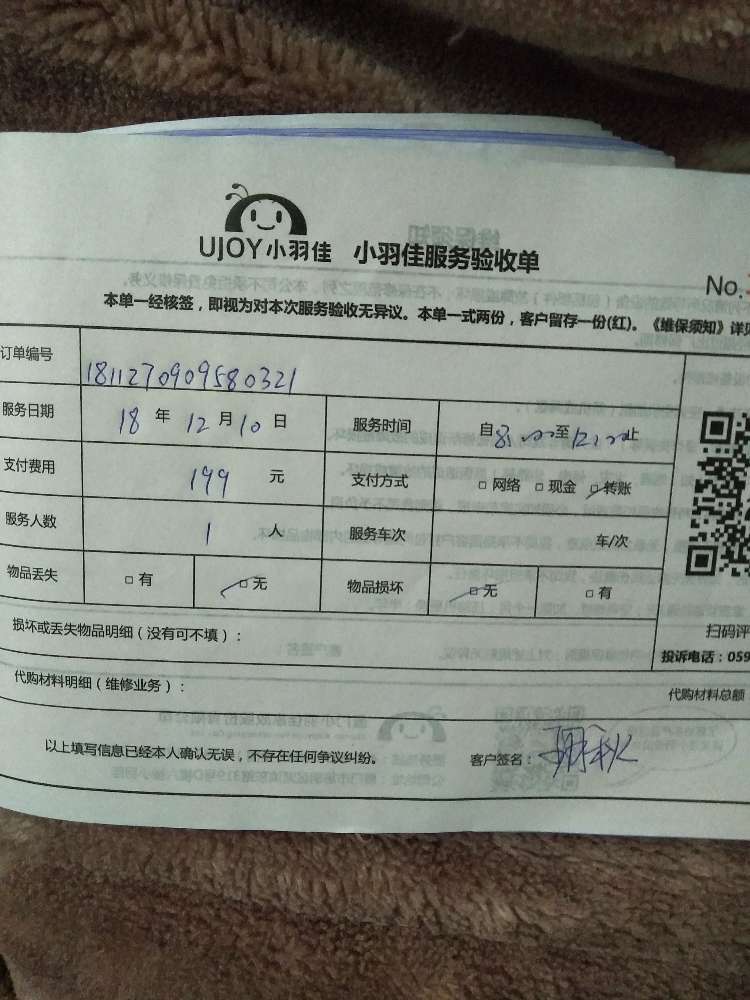 UJOY小羽佳 小羽佳服务验收单
No.
本单一经核签，即视为对本次服务验收无异议。本单一式两份，客户留存一份(红)。《维保须知》详见
订单编号 1811270909580321
服务日期 18 年 12 月 10 日 服务时间 自 8:00 至 12:00 止
支付费用 199 元 支付方式 □ 网络 □ 现金 □ 转账
服务人数 1 人 服务车次 车/次
物品丢失 □ 有 □ 无 物品损坏 □ 无 □ 有
损坏或丢失物品明细（没有可不填）：
扫码评
投诉电话：059
代购材料明细（维修业务）：
代购材料总额
以上填写信息已经本人确认无误，不存在任何争议纠纷。 客户签名：